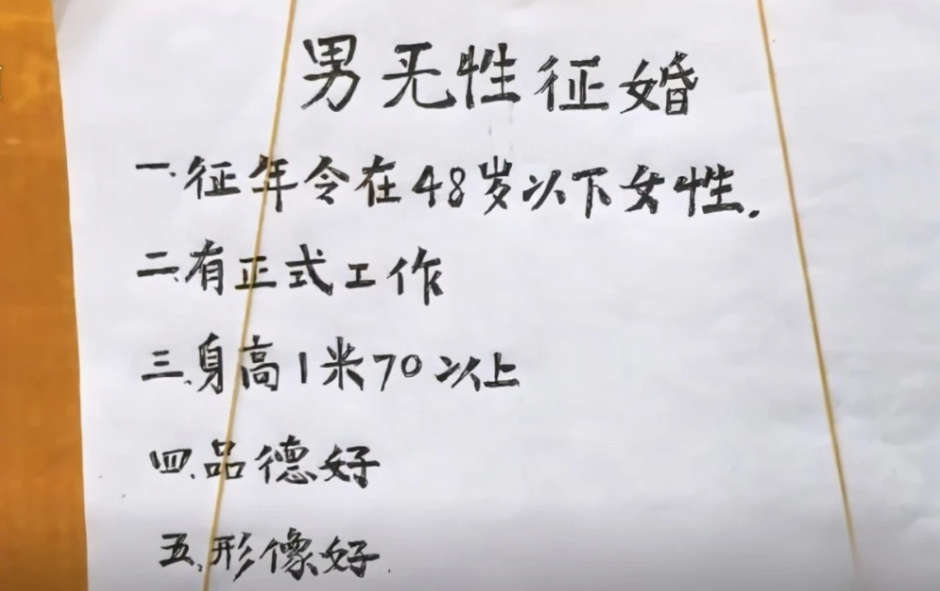 男无性征婚
一.征年令在48岁以下女性.
二.有正式工作
三.身高1米70以上
四.品德好
五.形像好.